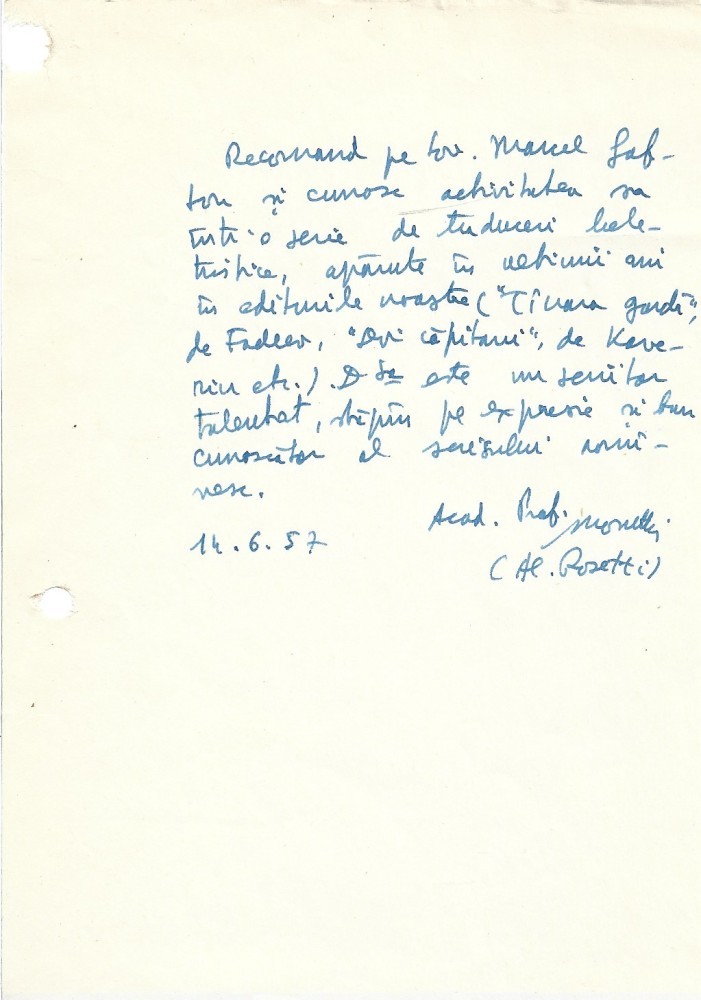 Recomand pe tov. Marcel Gaf-
ton și cunosc activitatea sa
într-o serie de traduceri bele-
tristice, apărute în ultimii ani
în editurile noastre ("Tînara gardă",
de Fadeev, "Doi căpitani", de Kave-
rin etc.). D sa este un scriitor
talentat, stăpîn pe expresie și bun
cunoscător al scrisului romî-
nesc.
Acad. Prof.
14.6.57
(Al. Rosetti)